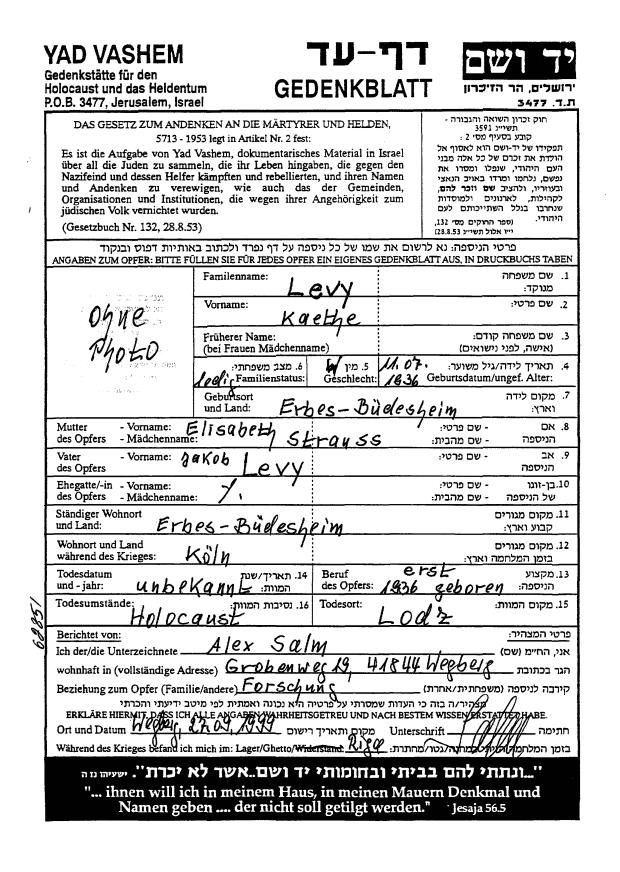 YAD VASHEM
Gedenkstätte für den
Holocaust und das Heldentum
P.O.B. 3477, Jerusalem, Israel
דף-עד
GEDENKBLATT
יד ושם
ירושלים, הר הזיכרון
ת.ד. 3477
DAS GESETZ ZUM ANDENKEN AN DIE MÄRTYRER UND HELDEN,
5713 - 1953 legt in Artikel Nr. 2 fest:
Es ist die Aufgabe von Yad Vashem, dokumentarisches Material in Israel
über all die Juden zu sammeln, die ihr Leben hingaben, die gegen den
Nazifeind und dessen Helfer kämpften und rebellierten, und ihren Namen
und Andenken zu verewigen, wie auch das der Gemeinden,
Organisationen und Institutionen, die wegen ihrer Angehörigkeit zum
jüdischen Volk vernichtet wurden.
(Gesetzbuch Nr. 132, 28.8.53)
חוק זכרון השואה והגבורה -
קובע בסעיף מס' 2 :
תפקידו של יד-ושם הוא לאסוף אל
מולדת את זכרם של כל אלה מבני
העם היהודי, שנפלו ומסרו את
נפשם, נלחמו ומרדו באויב הנאצי
ובעוזריו, ולהציב שם וזכר להם,
לקהילות, לארגונים ולמוסדות
שנחרבו בגלל השתייכותם לעם
היהודי.
(ספר החוקים מס' 132,
28.8.53)
פרטי הניספה: נא לרשום את שמו של כל ניספה על דף נפרד ולכתוב באותיות דפוס ובנקוד
ANGABEN ZUM OPFER: BITTE FÜLLEN SIE FÜR JEDES OPFER EIN EIGENES GEDENKBLATT AUS, IN DRUCKBUCHS TABEN
Ohne
Photo
Familienname: Levy 1. שם משפחה
מנוקד:
Vorname: Kaethe 2. שם פרטי:
Früherer Name: 3. שם משפחה קודם:
(bei Frauen Mädchenname) (אישה, לפני נישואים)
6. מצב משפחתי: 5. מין 11.07. 4. תאריך לידה/גיל משוער:
ledig Familienstatus: W Geschlecht: 1936 Geburtsdatum/ungef. Alter:
Geburtsort 7. מקום לידה
und Land: Erbes-Büdesheim וארץ:
Mutter - Vorname: Elisabeth - שם פרטי: 8. אם
des Opfers - Mädchenname: Strauss - שם מהבית: הניספה
Vater - Vorname: Jakob - שם פרטי: 9. אב
des Opfers Levy הניספה
Ehegatte/-in - Vorname: - שם פרטי: 10. בן-זוגו
des Opfers - Mädchenname: ./. - שם מהבית: של הניספה
Ständiger Wohnort 11. מקום מגורים
und Land: Erbes-Büdesheim קבוע וארץ:
Wohnort und Land 12. מקום מגורים
während des Krieges: Köln בזמן המלחמה וארץ:
Todesdatum 14. תאריך/שנת Beruf erst 13. מקצוע
und - jahr: unbekannt המוות: des Opfers: 1936 geboren הניספה:
Todesumstände: Holocaust 16. נסיבות המוות: Todesort: Lodz 15. מקום המוות:
68851
Berichtet von: פרטי המצהיר:
Ich der/die Unterzeichnete Alex Salm אני, החי"מ (שם)
wohnhaft in (vollständige Adresse) Grobenweg 19, 41844 Wegberg הגר בכתובת
Beziehung zum Opfer (Familie/andere) Forschung קירבה לניספה (משפחתית/אחרת)
מצהיר/ה בזה כי העדות שמסרתי על פרטיה היא נכונה ואמתית לפי מיטב ידיעתי והכרתי
ERKLÄRE HIERMIT, DASS ICH ALLE ANGABEN WAHRHEITSGETREU UND NACH BESTEM WISSEN ERSTATTET HABE.
Ort und Datum Wegberg, 27.09.1999 מקום ותאריך רישום Unterschrift חתימה
Während des Krieges befand ich mich im: Lager/Ghetto/Widerstand: Riga בזמן המלחמה
"...ונתתי להם בביתי ובחומותי יד ושם...אשר לא יכרת". ישעיהו נו ה
"... ihnen will ich in meinem Haus, in meinen Mauern Denkmal und
Namen geben .... der nicht soll getilgt werden." Jesaja 56.5